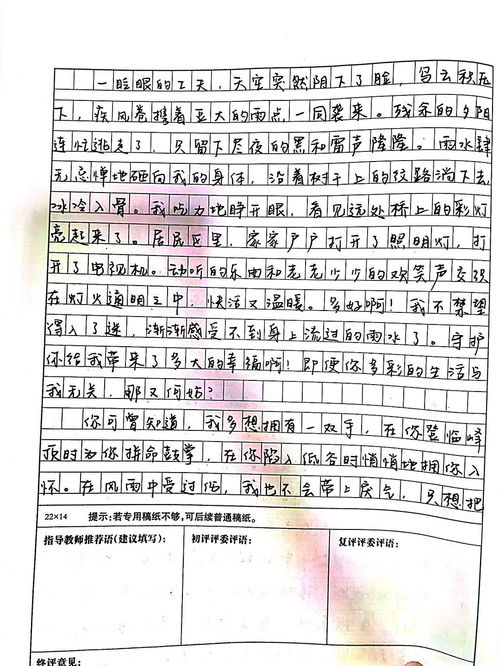 一眨眼的工夫，天空突然阴下了脸，乌云积压
下，疾风卷携着巨大的雨点一同袭来。残余的夕阳
连忙逃走了，只留下尽夜的黑和雷声隆隆。雨水肆
无忌惮地砸向我的身体，沿着树干上的纹路淌下去，
冰冷入骨。我吃力地睁开眼，看见远处桥上的彩灯
亮起来了。居民区里，家家户户打开了照明灯，打
开了电视机。动听的乐曲和老老少少的欢笑声交织
在灯火通明之中，快活又温暖。多好啊！我不禁望
得入了迷，渐渐感受不到身上流过的雨水了。守护
你给我带来了多大的幸福啊！即便你多彩的生活与
我无关，那又何妨？
你可曾知道，我多想拥有一双手，在你登临峰
顶时为你拼命鼓掌，在你陷入低谷时悄悄地拥你入
怀。在风雨中受过伤，我也不会带上戾气，只想把
22×14 提示：若专用稿纸不够，可后续普通稿纸。
指导教师推荐语(建议填写)： 初评评委评语： 复评评委评语：
终评意见：